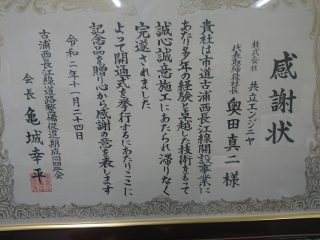 感謝状
株式会社 共立エンジニヤ
代表取締役社長 奥田真二様
貴社は市道古浦西長江線開設事業に
あたり多年の経験と卓越した技術をもって
誠心誠意施工にあたられ滞りなく
完遂されました
よって開通式を挙行するにあたりここに
記念品を贈り心から感謝の意を表します
令和二年十一月二十四日
古浦西長江線道路整備促進期成同盟会
会長 亀城幸平